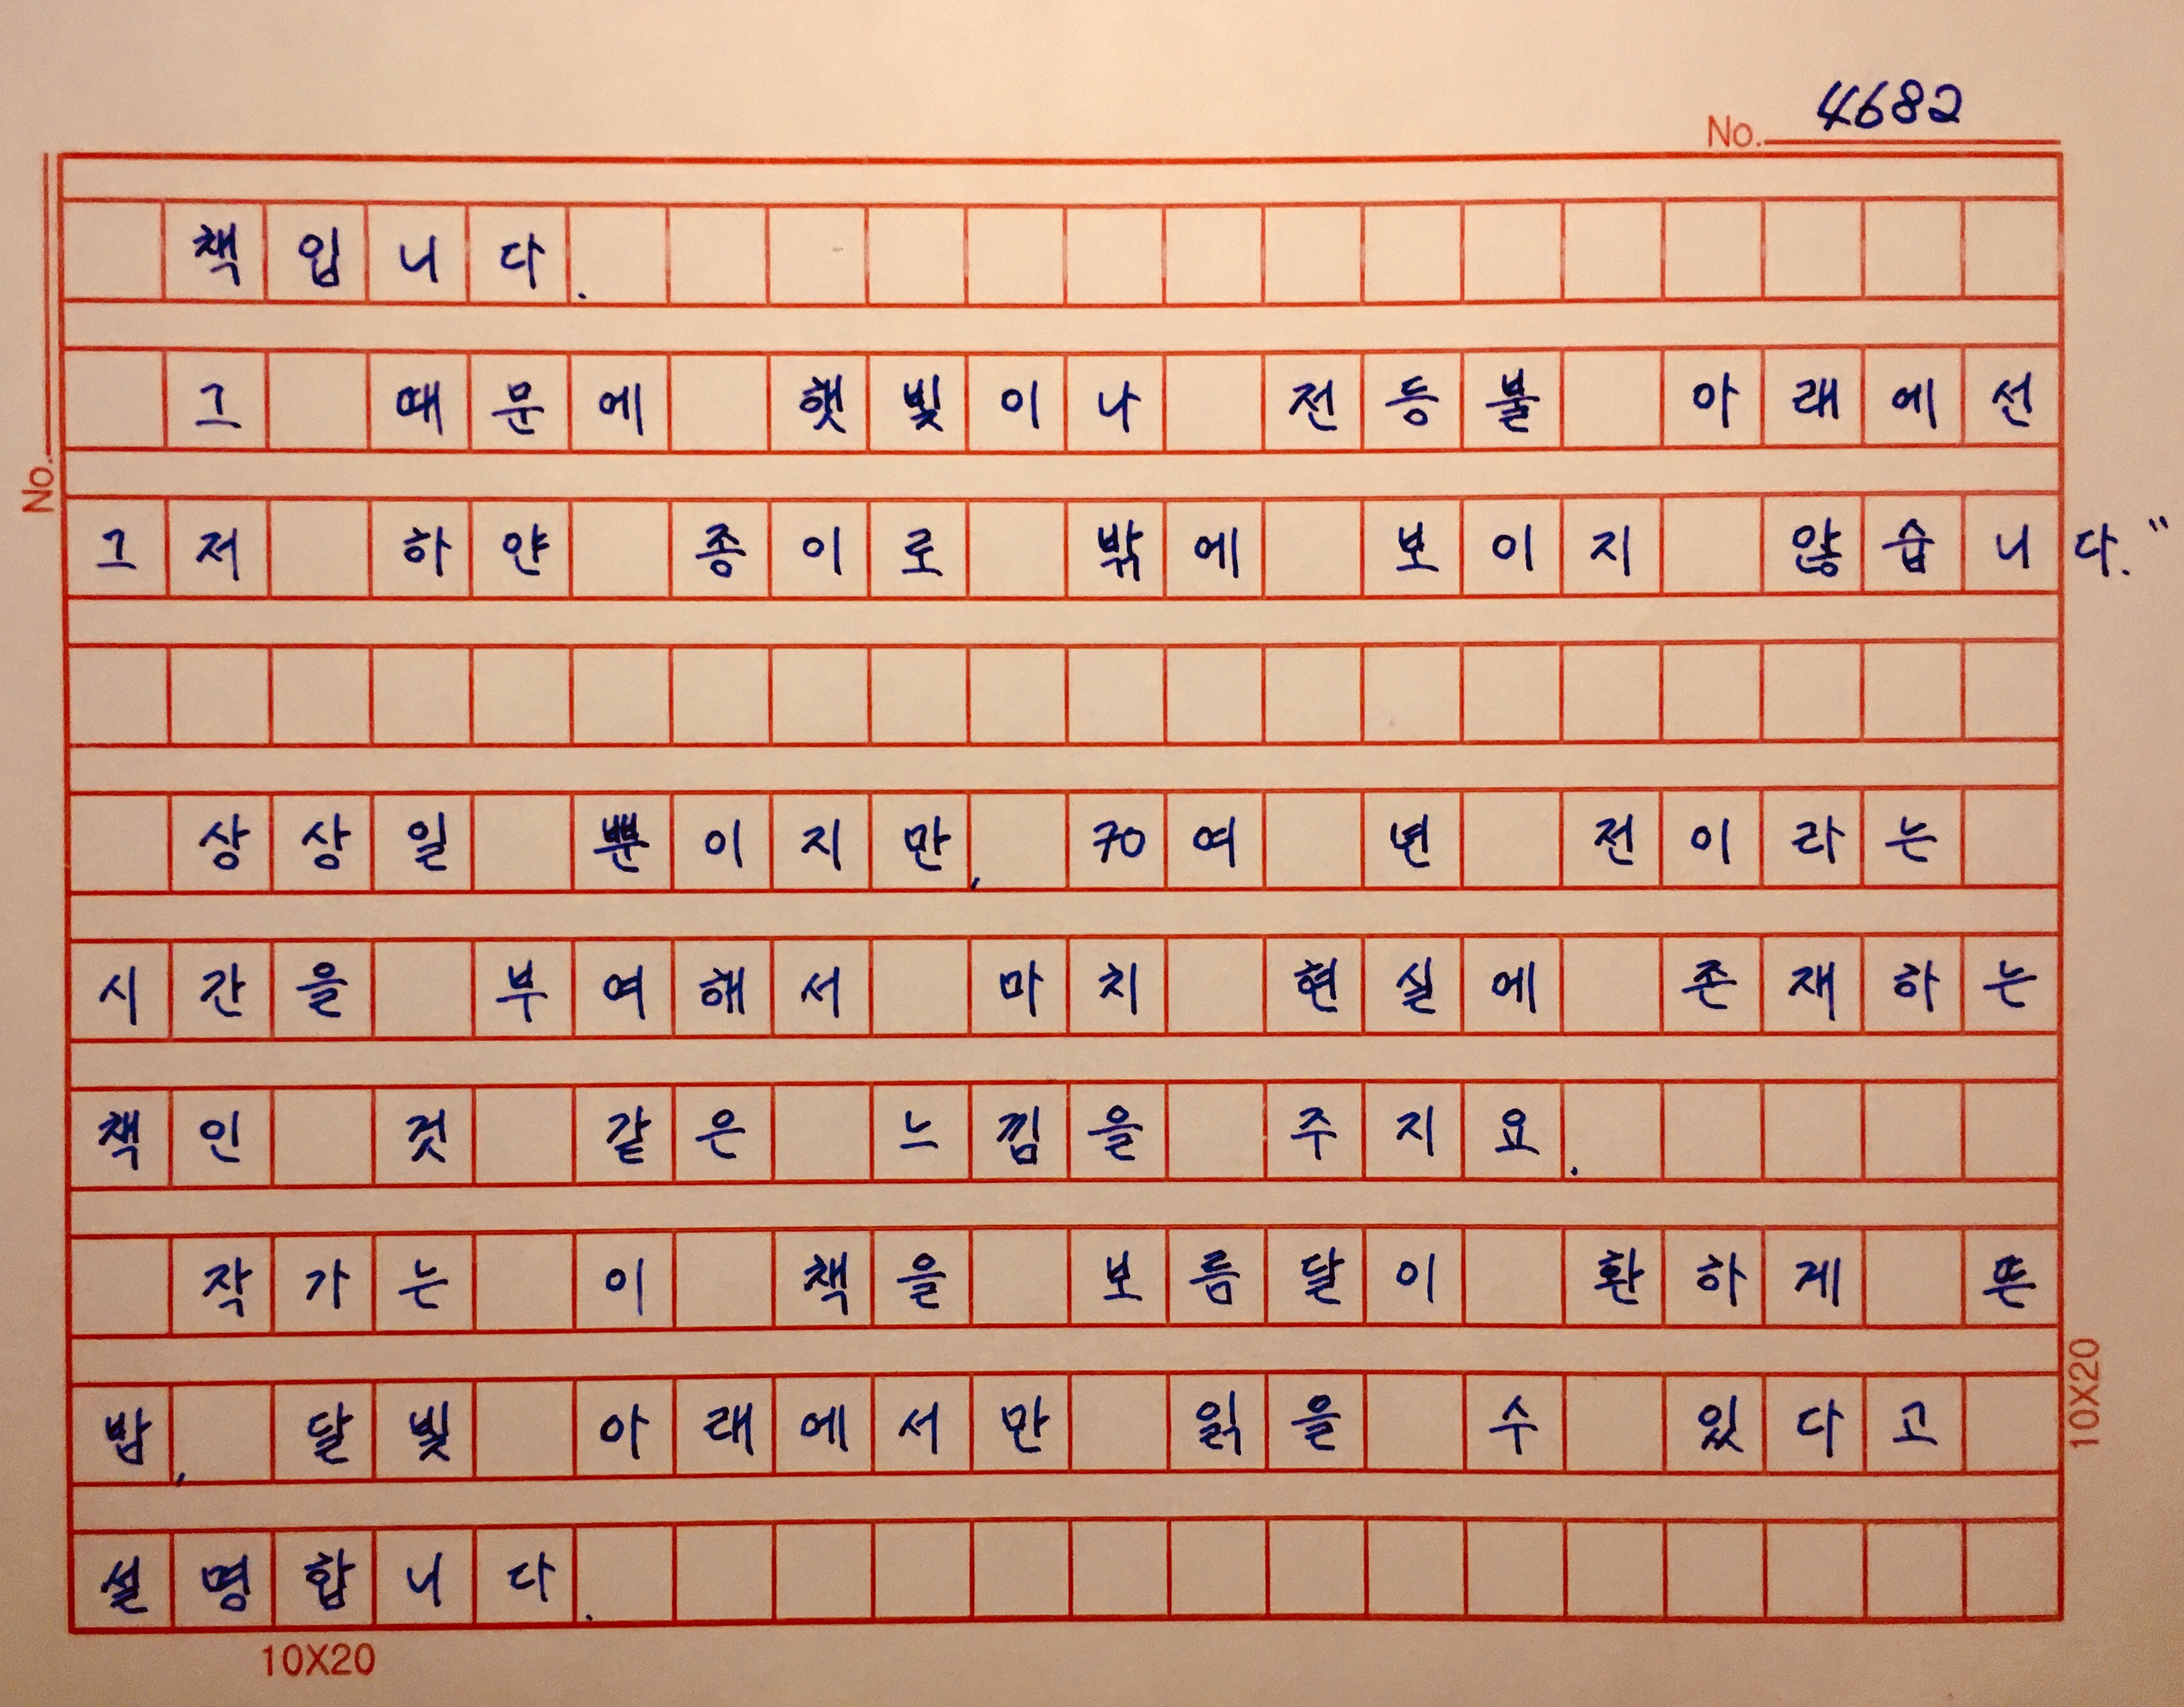 No. 4682
책입니다.
그 때문에 햇빛이나 전등불 아래에선
No.
그저 하얀 종이로 밖에 보이지 않습니다."
상상일 뿐이지만, 70여 년 전이라는
시간을 부여해서 마치 현실에 존재하는
책인 것 같은 느낌을 주지요.
작가는 이 책을 보름달이 환하게 뜬
밤, 달빛 아래에서만 읽을 수 있다고
10X20
설명합니다.
10X20